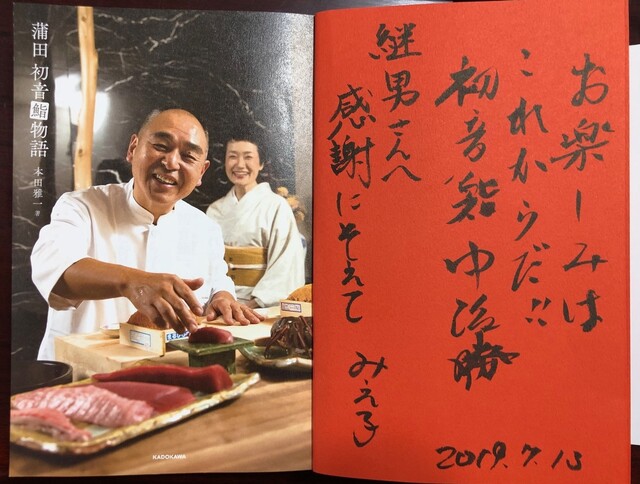 蒲田 初音鮨物語
本田雅一 著
KADOKAWA
お楽しみは
これからだ!!
初音鮨 中治勝
継男さんへ
感謝にそえて みえ子
2019.7.13